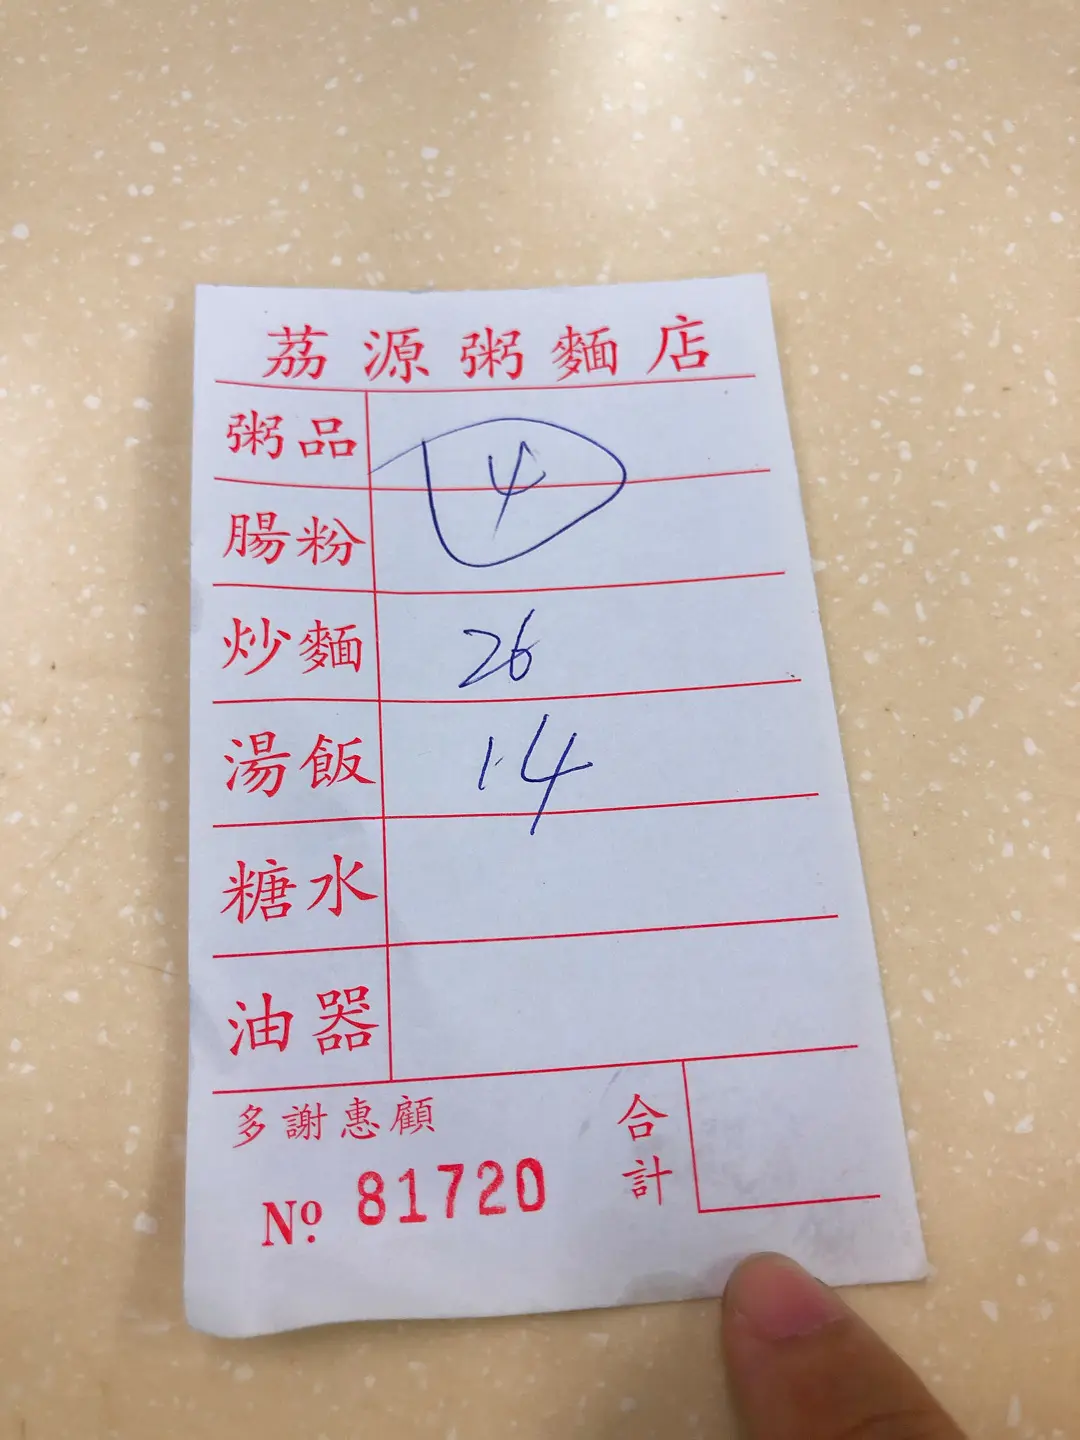 荔源粥麵店
粥品
4
腸粉
炒麵 26
湯飯 1.4
糖水
油器
多謝惠顧 合計
Nº. 81720